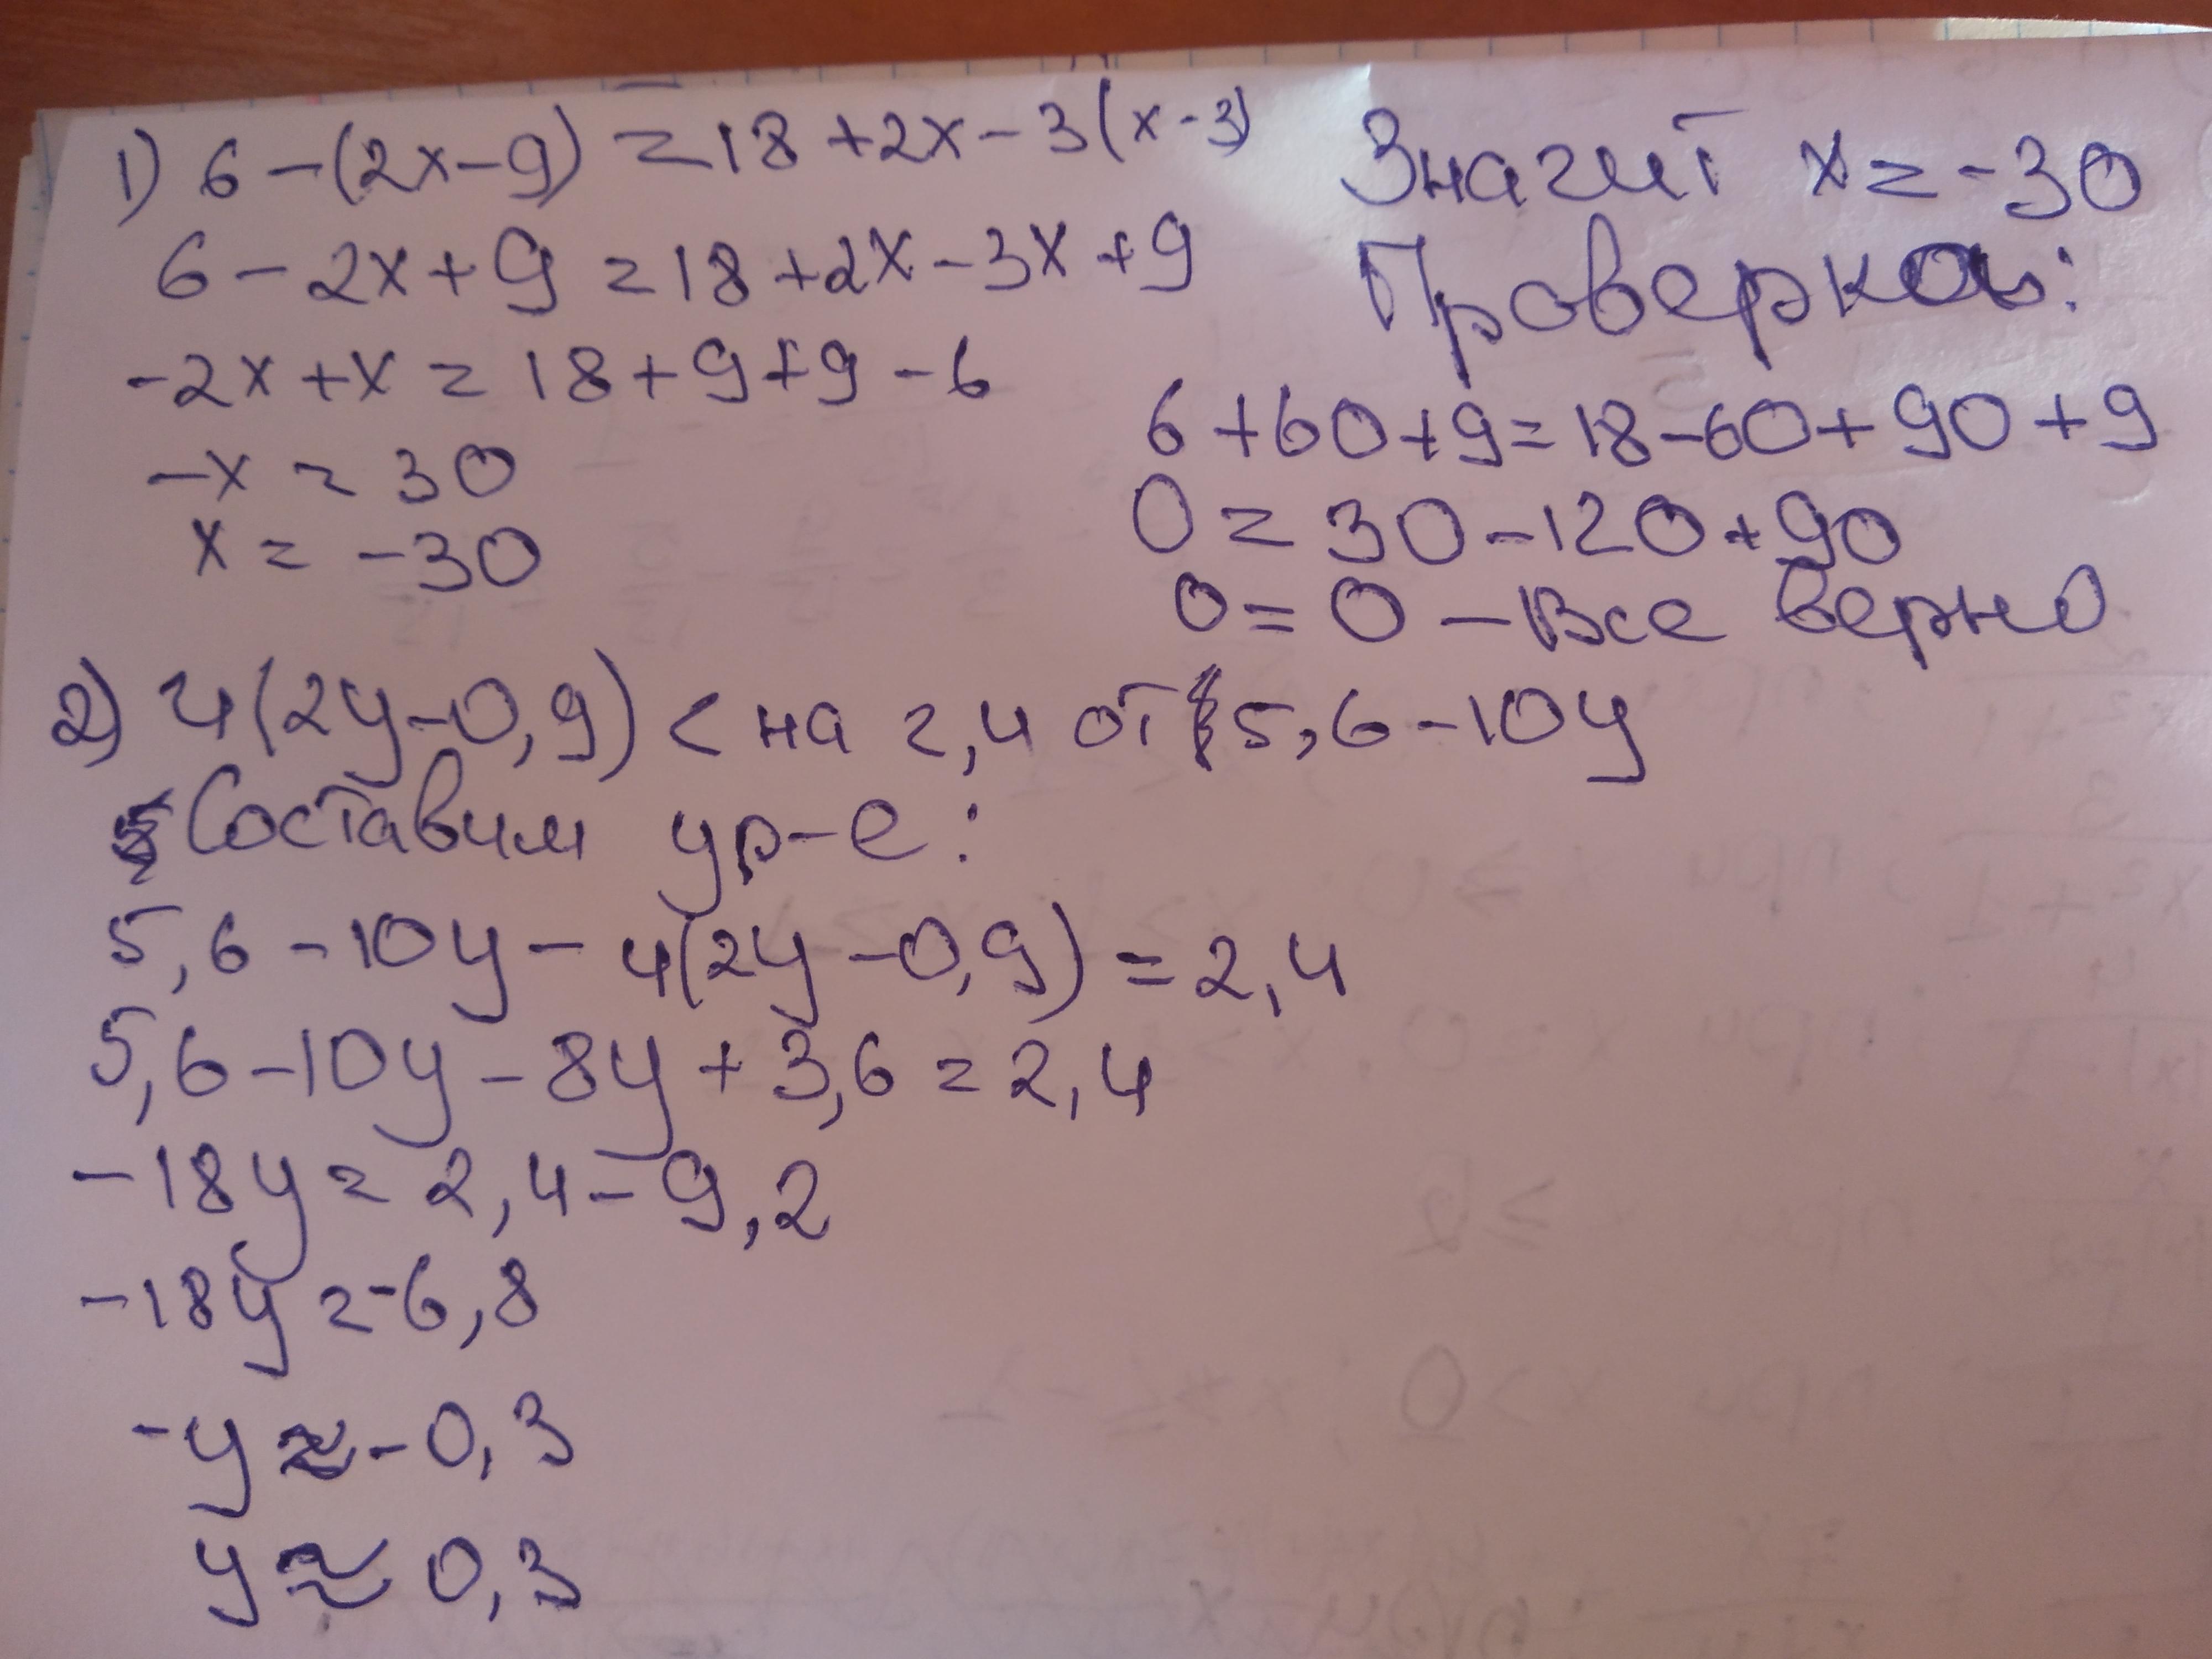 1) 6-(2x-9)=18+2x-3(x-3)
6-2x+9=18+2x-3x+9
-2x+x=18+9+9-6
-x=30
x=-30
Значит x=-30
Проверка:
6+60+9=18-60+90+9
0=30-120+90
0=0-Все верно
2) 4(2y-0,9)< на 2,4 от 5,6-10y
Составим ур-е:
5,6-10y-4(2y-0,9)=2,4
5,6-10y-8y+3,6=2,4
-18y=2,4-9,2
-18y=-6,8
-y≈-0,3
y≈0,3